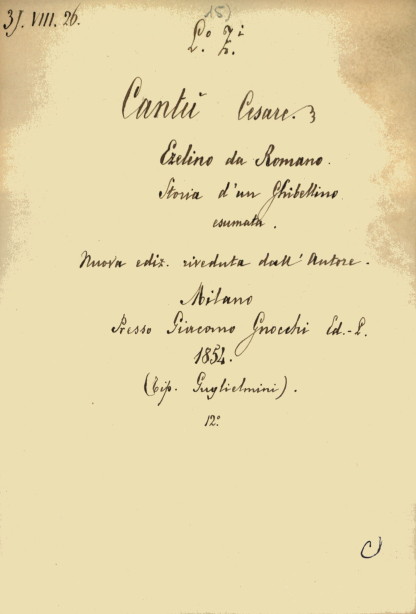 15)
3J. VIII. 26.
Cantù Cesare.
Ezelino da Romano.
Storia d'un Ghibellino
esumata.
Nuova ediz. riveduta dall'Autore.
Milano
Presso Giacomo Gnocchi Ed.-L.
1854.
(Tip. Guglielmini).
12°